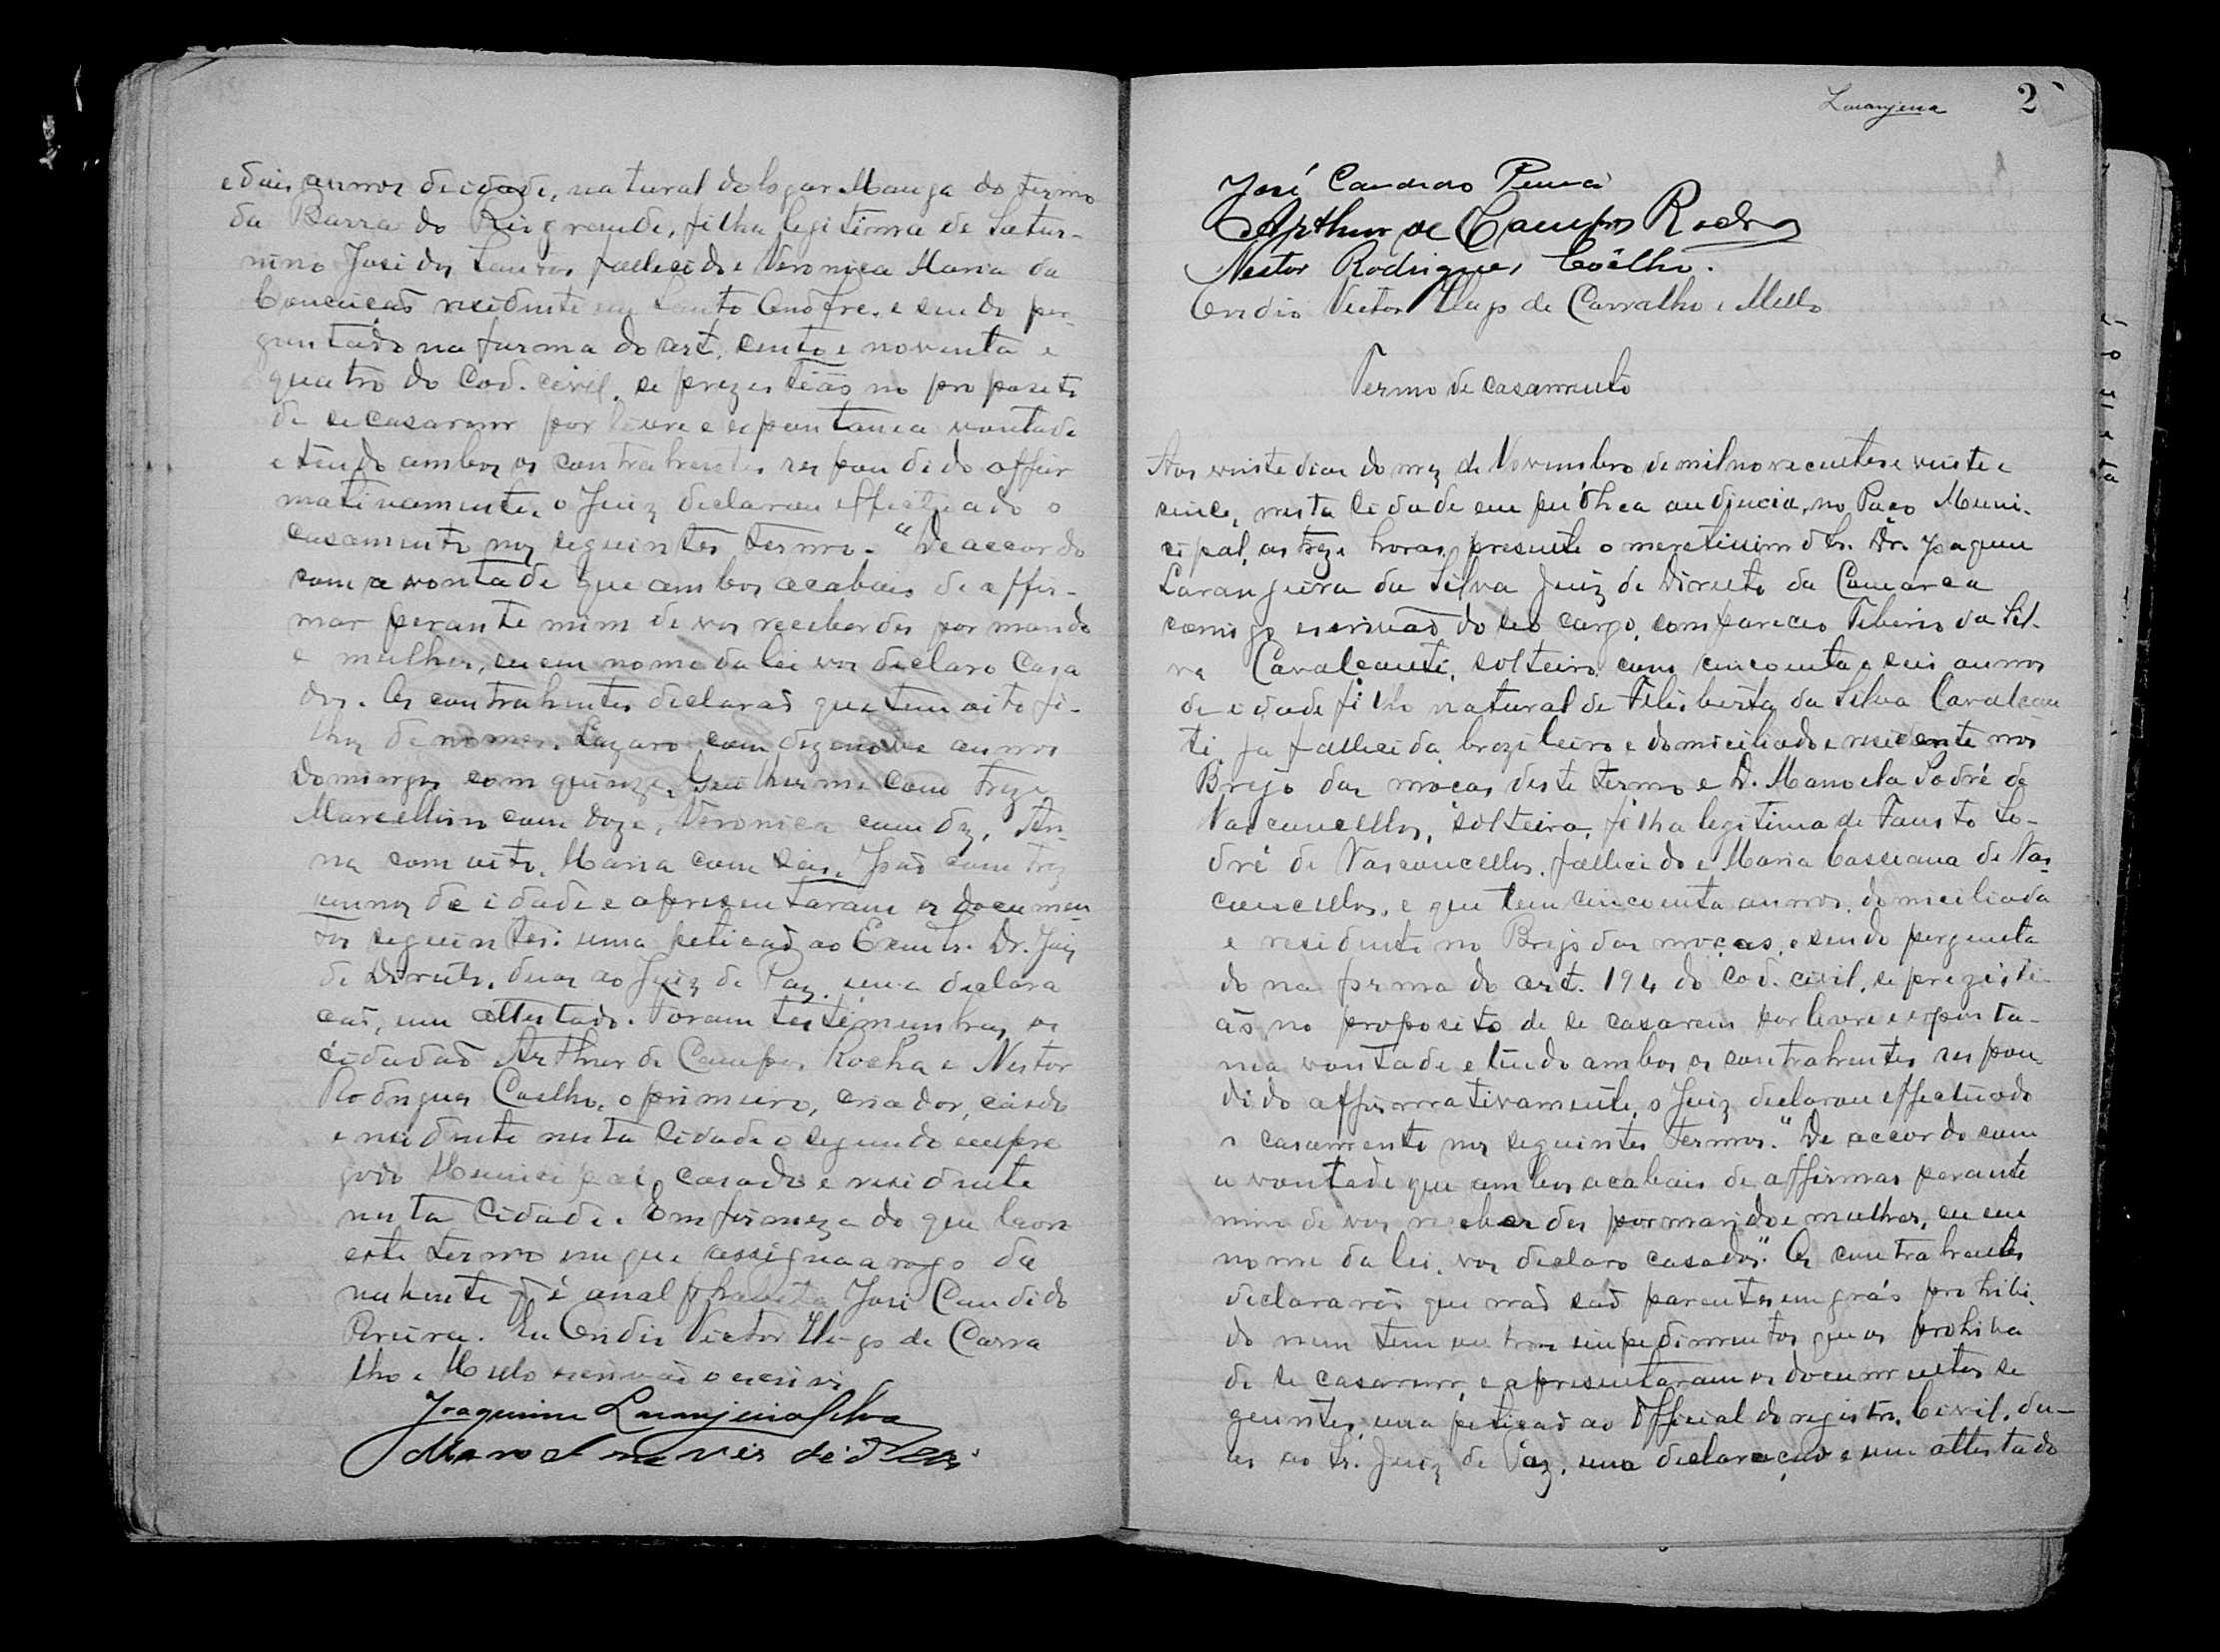 e dois annos de idade, natural do logar Manga do termo
da Barra do Rio grande, filha legitima de Satur-
nino José dos Santos fallecido e Veronica Maria da
Conceicaõ residente em Santo Onofre. e sendo per-
guntado na forma do art. cento e noventa e
quatro do Cod. civil. se prezestiaõ no proposito
de se casarem por livre e espontanea vontade
e tendo ambos os contrahentes respondido affir
mativamente, o Juiz declarou effectuado o
casamento nos seguintes termo. "De accordo
com a vontade que ambos acabais de affir-
mar perante mim de vos receberdes por marido
e mulher, eu em nome da lei vos declaro Casa
dos. Os contrahentes declaraõ que tem oito fi-
lhos de nomes. Lazaro com dezenove annos
Domingos com quinze, Guilherme com treze
Marcellino com doze, Veronica com dez, An-
na com oito, Maria com seis, Joaõ com trez
annos de idade e apresentaram os documen
tos seguintes: uma peticaõ ao Exmo. Sr. Dr. Juiz
de Direito, duas ao Juiz de Paz, uma declara
caõ, um attestado. Foram testemunhas os
cidadaõ Arthur de Campos Rocha e Nestor
Rodrigues Coelho, o primeiro, criador, casado
e residente nesta Cidade o segundo empre
gado Municipal, casado e residente
nesta Cidade. Em firmeza do que lavro
este termo em que assigna a rogo da
nubente q é analphabeta José Candido
Pereira. Eu Victor Hugo de Carva
lho e Mello escrivaõ o escrivi
Joaquim Laranjeira Silva
Manoel neves de
Laranjeira 2
José Candido Pereira
Arthur de Campos Rocha
Nestor Rodrigues Coêlho.
Victor Hugo de Carvalho e Mello
Termo de casamento
Aos vinte dias do mez de Novembro de mil novecentos e vinte e
cinco, nesta Cidade em publica audiencia, no Paço Muni-
cipal, as treze horas, presente o meretissimo Sr. Dr. Joaquim
Laranjeira da Silva Juiz de Direito da Comarca
comigo escrivaõ do seo cargo, compareceo Tiberio da Sil-
va Cavalcanti, solteiro, com cincoenta e seis annos
de idade filho natural de Feliberta da Silva Cavalcan
ti ja fallecida, brazileiro e domiciliado e residente nos
Brejo das moças deste termo e D. Manoela Sodré de
Vasconcellos, solteira, filha legitima de Fausto So-
dré de Vasconcellos, fallecido e Maria Cassiana de Vas-
concellos, e que tem cincoenta annos, domiciliada
e residente no Brejo das moças, e sendo pergunta
do na forma do art. 194 do Cod. civil, se prezisti-
aõ no proposito de se casarem por livre e esponta-
nea vontade e tendo ambos os contrahentes respon
dido affirmativamente, o Juiz declarou effectuado
o casamento nos seguintes termos. "De accordo com
a vontade que ambos acabais de affirmar perante
mim de vos receberdes por marido e mulher, eu em
nome da lei, vos declaro casados". Os contrahentes
declararaõ que naõ saõ parentes em gráo prohibi-
do nem tem outros impedimentos que os prohiba
de se casarem, e apresentaram os documentos se
guintes, uma peticaõ ao Official do registro Civil, du-
as ao Sr. Juiz de Paz, uma declaração e um attestado